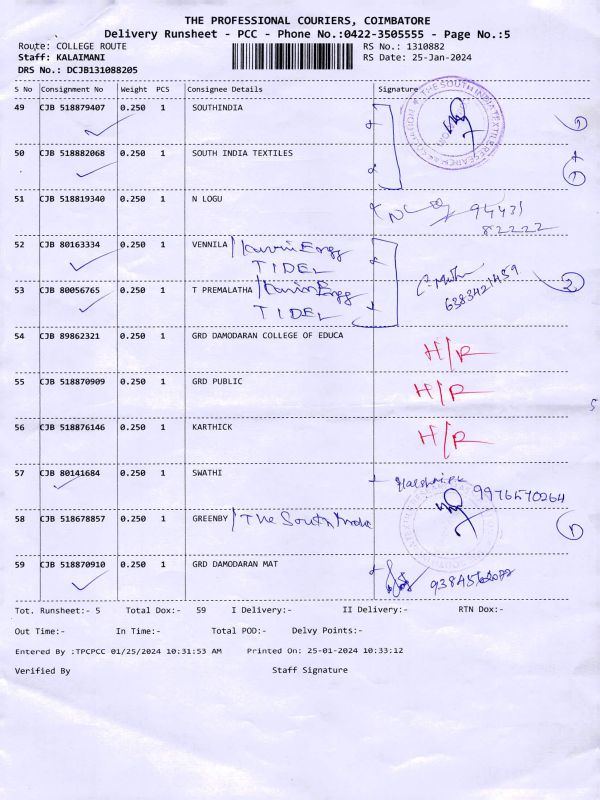 THE PROFESSIONAL COURIERS, COIMBATORE
Delivery Runsheet - PCC - Phone No.:0422-3505555 - Page No.:5
Route: COLLEGE ROUTE RS No.: 1310882
Staff: KALAIMANI RS Date: 25-Jan-2024
DRS No.: DCJB131088205
S No Consignment No Weight PCS Consignee Details Signature
49 CJB 518879407 0.250 1 SOUTHINDIA
50 CJB 518882068 0.250 1 SOUTH INDIA TEXTILES
51 CJB 518819340 0.250 1 N LOGU 94431
82222
52 CJB 80163334 0.250 1 VENNILA / Kavin Engg
TIDEL
53 CJB 80056765 0.250 1 T PREMALATHA / Kavin Engg 6383421459 2
TIDEL
54 CJB 89862321 0.250 1 GRD DAMODARAN COLLEGE OF EDUCA H/R
55 CJB 518870909 0.250 1 GRD PUBLIC H/R
56 CJB 518876146 0.250 1 KARTHICK H/R
57 CJB 80141684 0.250 1 SWATHI 9976570264
58 CJB 518678857 0.250 1 GREENBY / The South India 1
59 CJB 518870910 0.250 1 GRD DAMODARAN MAT
Tot. Runsheet:- 5 Total Dox:- 59 I Delivery:- II Delivery:- RTN Dox:-
Out Time:- In Time:- Total POD:- Delvy Points:-
Entered By :TPCPCC 01/25/2024 10:31:53 AM Printed On: 25-01-2024 10:33:12
Verified By Staff Signature